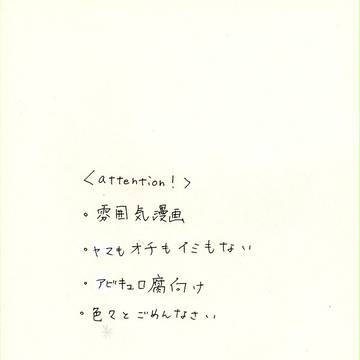 <attention!>
・雰囲気漫画
・ヤマもオチもイミもない
・アビキュロ腐向け
・色々とごめんなさい